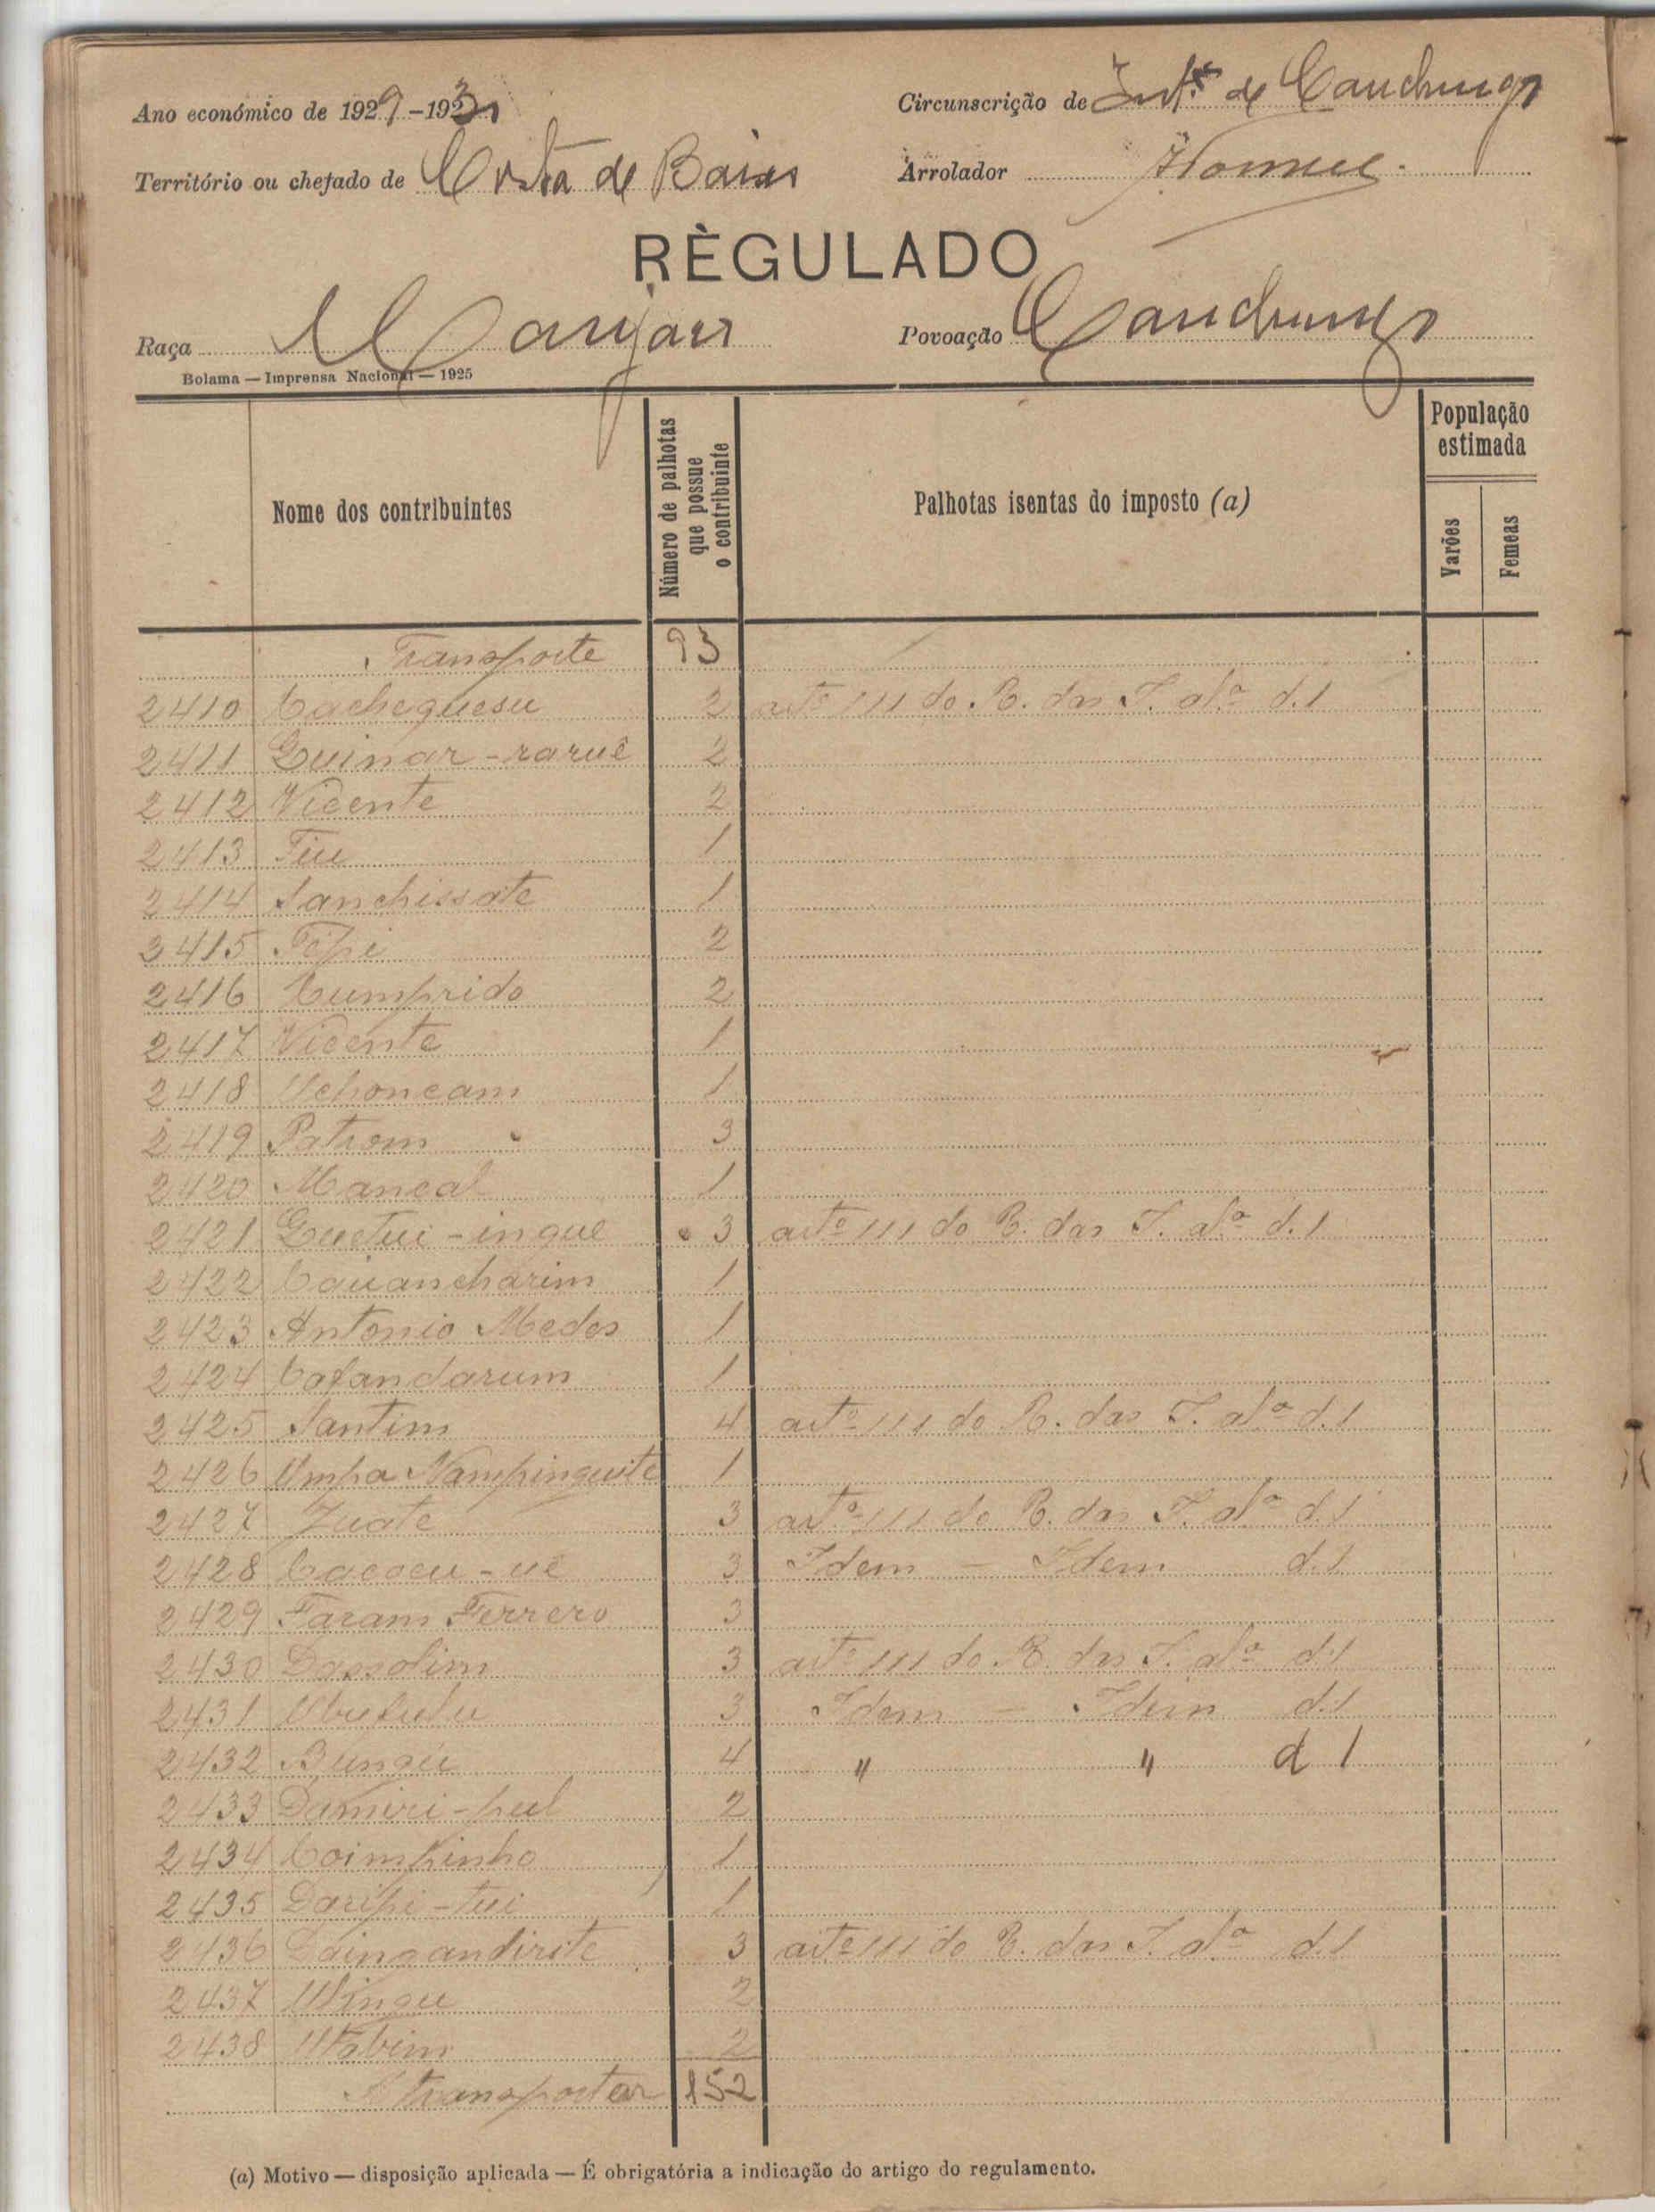 Ano económico de 1929-1930
Circunscrição de Int.ª de Canchungo
Território ou chefado de Costa de Baixo
Arrolador
RÈGULADO
Raça Manjaco
Povoação Canchungo
Bolama — Imprensa Nacional — 1925
Nome dos contribuintes
Número de palhotas que possue o contribuinte
Palhotas isentas do imposto (a)
População estimada
Varões
Femeas
Transporte 93
2410 Cacheguesu 2 artº 111 do R. das I. alª d.1
2411 Guinar-raruê 2
2412 Vicente 2
2413 Tiu 1
2414 Sanchissate 1
2415 Pépi 2
2416 Cumprido 2
2417 Vicente 1
2418 Uchoncam 1
2419 Patrom 3
2420 Mancal 1
2421 Guetui-ingue 3 artº 111 do R. das I. alª d.1
2422 Cauancharim 1
2423 Antonio Medos 1
2424 Cafandarum 1
2425 Santim 4 artº 111 do R. das I. alª d.1
2426 Umpa Nampinguite 1
2427 Zuate 3 artº 111 do R. das I. alª d.1
2428 Cacacu-uê 3 Idem — Idem d.1
2429 Faram Ferrero 3
2430 Dassolim 3 artº 111 do R. das I. alª d.1
2431 3 Idem — Idem d.1
2432 Bungu 4 " " d 1
2433 Damiri-pul 2
2434 Coimpinho 1
2435 Daripi-tui 1
2436 Daingandirite 3 artº 111 do R. das I. alª d.1
2437 2
2438 2
A transportar 152
(a) Motivo — disposição aplicada — É obrigatória a indicação do artigo do regulamento.